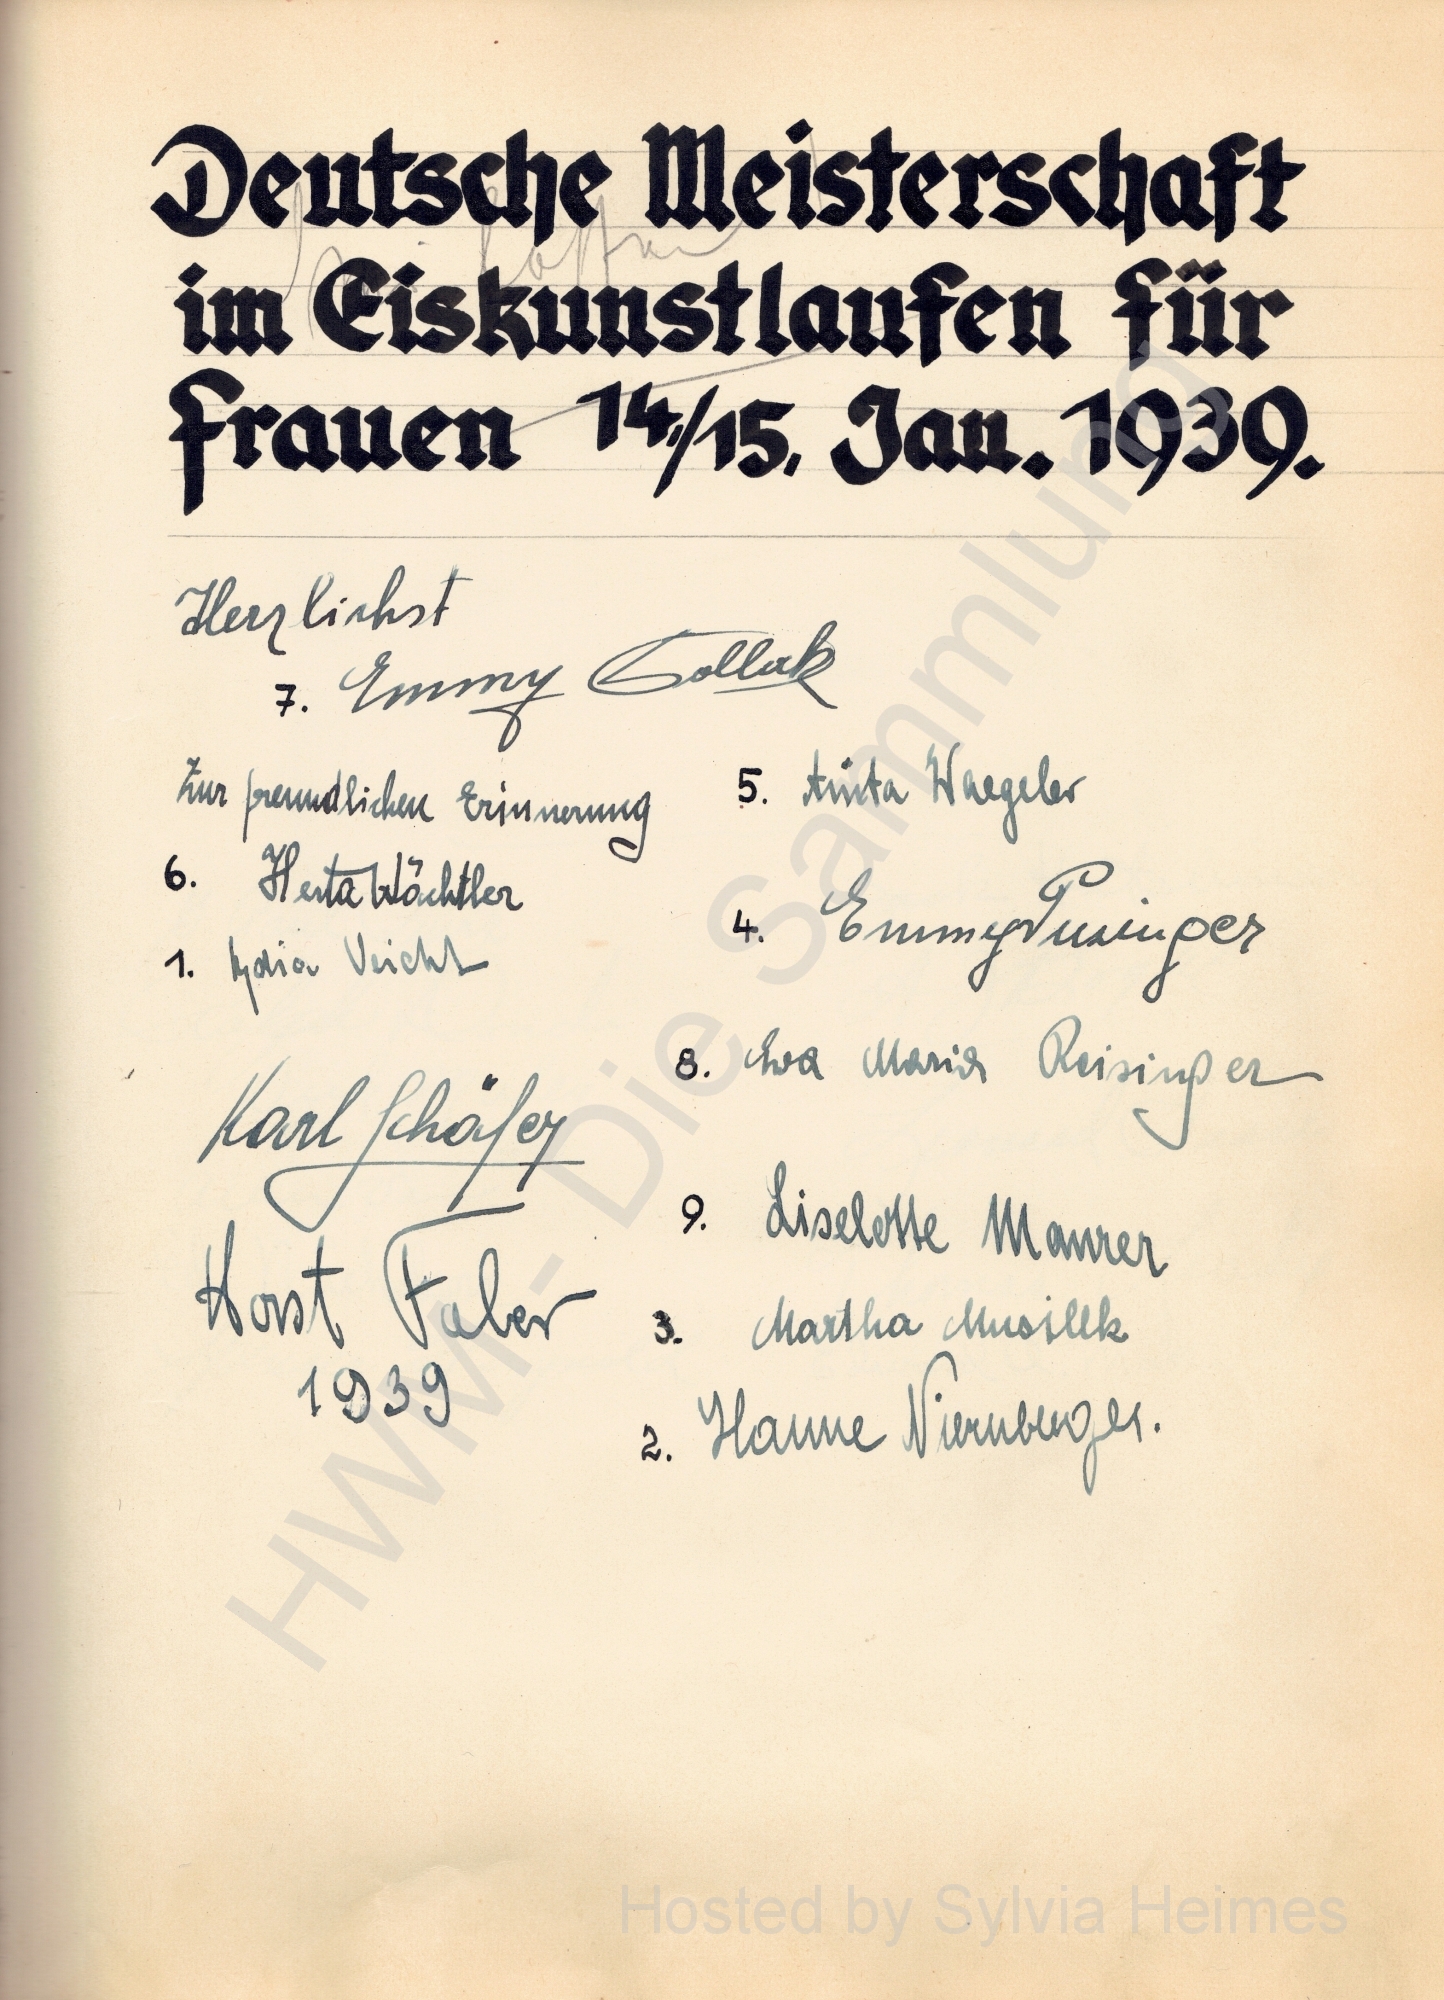 Deutsche Meisterschaft
im Eiskunstlaufen für
Frauen 14./15. Jan. 1939.
Herzlichst
7. Emmy
Zur freundlichen Erinnerung
6. Herta Wächtler
1. Lydia Veicht
Karl Schäfer
Horst Faber
1939
5. Anita Waegeler
4. Emmy Puzinger
8. Eva Maria Reisinger
9. Liselotte Maurer
3. Martha Musilek
2. Hanne Niernberger.
HWM - Die Sammlung
Hosted by Sylvia Heimes